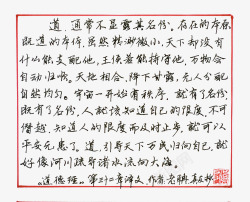 道，通常不显露其名份。存在的本体
既道的本体，虽然精渺微小，天下却没有
什么能支配他。王侯若能持循他，万物会
自动归依。天地相合，降下甘露，无人分配
自然均匀。宇宙一开始有秩序，就有了名份，
既有了名份，人就该知道自己的限度，不可
僭越，知道人的限度而及时止步，就可以
平安无患了。道，引导天下万民归向自己，就
好像河川疏导诸水流向大海。
《道德经》第三十二章译文 作者老聃